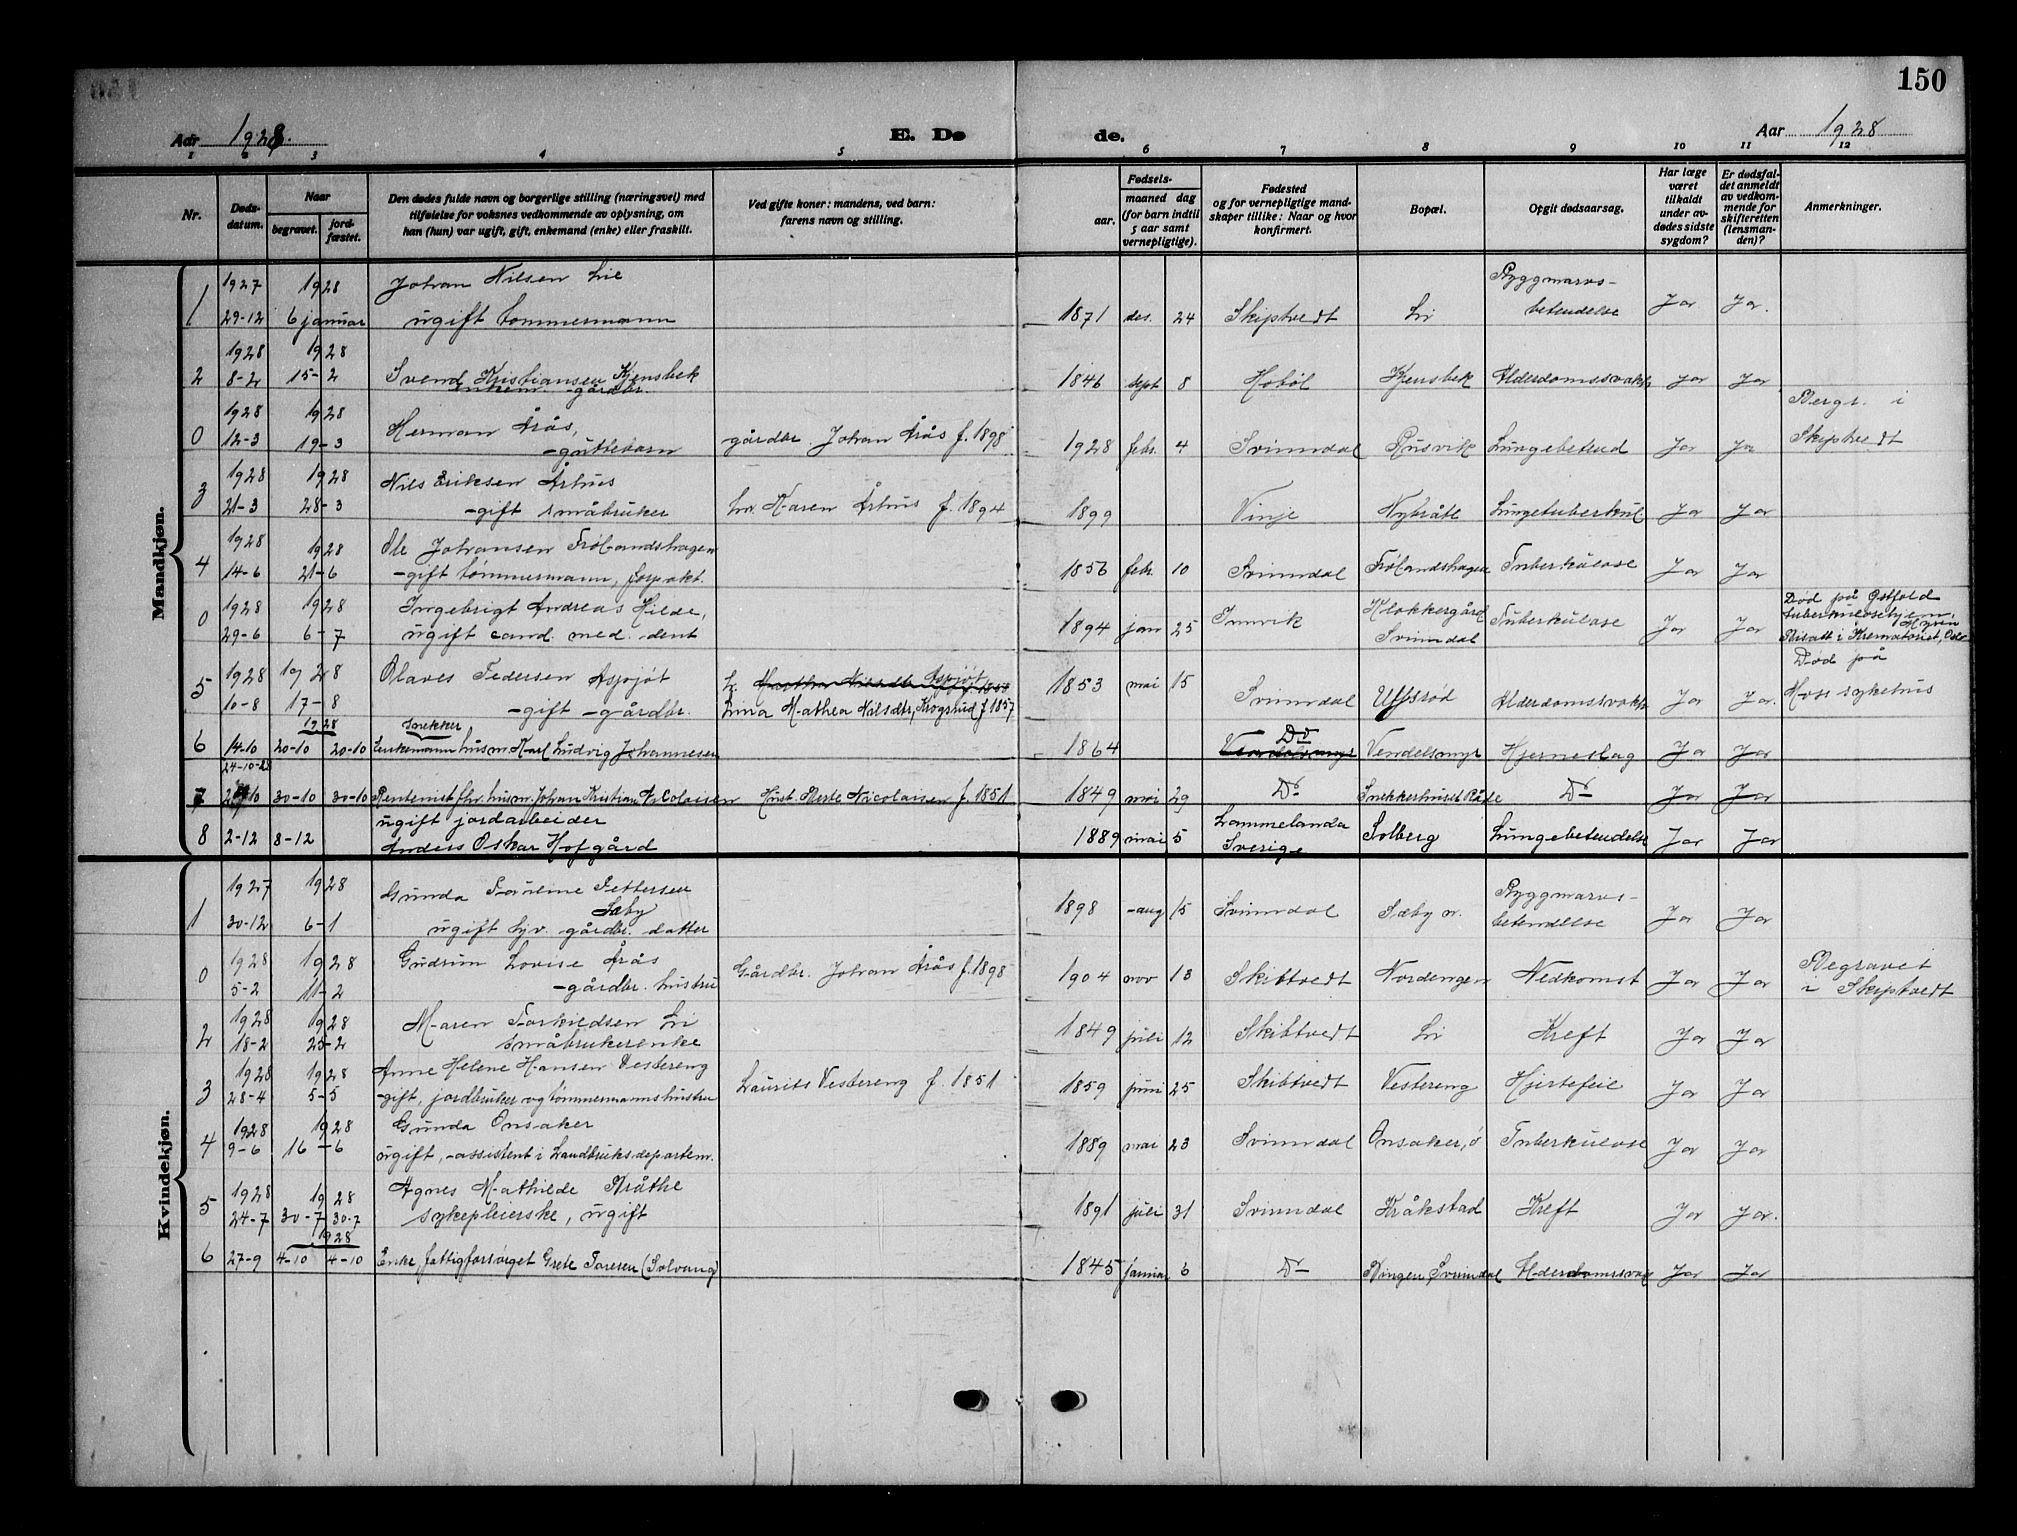 150
Aar 1928.
E. Døde.
Aar 1928
1 2 3 4 5 6 7 8 9 10 11 12
Nr.
Døds-datum.
Naar
begravet.
jord-fæstet.
Den dødes fulde navn og borgerlige stilling (næringsvei) med
tilføielse for voksnes vedkommende av oplysning, om
han (hun) var ugift, gift, enkemand (enke) eller fraskilt.
Ved gifte koner: mandens, ved barn:
farens navn og stilling.
Fødsels-
aar.
maaned dag
(for barn indtil
5 aar samt
vernepligtige).
Fødested
og for vernepligtige mand-
skaper tillike: Naar og hvor
konfirmert.
Bopæl.
Opgit dødsaarsag.
Har læge
været
tilkaldt
under av-
dødes sidste
sygdom?
Er dødsfal-
det anmeldt
av vedkom-
mende for
skifteretten
(lensman-
den)?
Anmerkninger.
Mandkjøn.
1927 1928 Johan Nilsen Lie Ryggmarvs-
1 29-12 6 januar ugift tømmermann 1871 des. 24 Skiptvedt Li betendelse Ja Ja.
1928 1928
2 8-2 15-2 Svend Kristiansen Kjensbek 1846 sept 8 Hobøl Kjensbek Alderdomssvakh Ja Ja
enkem. gårdbr.
1928 1928 Herman Årås, Begr. i
0 12-3 19-3 - guttebarn gårdbr Johan Årås f. 1898 1928 febr. 4 Svinndal Rusvik Lungebetend Ja Ja Skiptvedt
1928 1928 Nils Eriksen Århus
3 21-3 28-3 - gift småbruker hr. Karen Århus f. 1894 1899 Vinje Nybråte Lungetuberkul. Ja Ja
1928 1928 Ole Johansen Frølandshagen
4 14-6 21-6 - gift tømmermann, forpakt. 1856 febr. 10 Svinndal Frølandshagen Tuberkulose Ja Ja
1928 1928 Ingebrigt Andreas Hilde,
0 29-6 6-7 ugift cand. med. dent 1894 jan 25 Innvik Klokkergård Svinndal Tuberkulose Ja Ja
Død på Østfold
tuberkulosehjem,
Mysen
Bisatt i Krematoriet, Oslo
1928 1928 Olaves Pedersen Aspsjøt
5 10-8 17-8 - gift - gårdbr. Lina Mathea Nilsdtr, Krogsrud f. 1857 1853 mai 15 Svinndal Ulfsrød Alderdomssvakh Ja Ja. Død på
Moss sykehus
1928 snekker
6 14-10 20-10 20-10 Enkemann husm. Karl Ludvig Johannesen 1864 Do Vendelsmyr Hjerneslag Ja Ja
24-10-28
7 30-10 30-10 Rentenist fhv. husm. Johan Kristian Nicolaisen Hust. Berte Nicolaisen f. 1851 1849 mai 29 Do Snekkerhuset Råde Do Ja Ja
ugift jordarbeider
8 2-12 8-12 Anders Oskar Hofgård 1889 mai 5 Lammelanda Sverige Solberg Lungebetendelse Ja Ja
Kvindekjøn.
1927 1928 Gunda Pettersen Ryggmarvs-
Sæby
1 30-12 6-1 ugift hjv. gårdbr. datter 1898 aug 15 Svinndal Sæby n. betendelse Ja Ja
1928 1928 Gudrun Lovise Årås Begravet
0 5-2 11-2 - gårdbr. hustru Gårdbr. Johan Årås f. 1898 1904 nov 13 Skibtvedt Nordengen Nedkomst Ja Ja i Skiptvedt
1928 1928 Maren Torkildsen Li
2 18-2 25-2 småbrukerenke 1849 juli 12 Skibtvedt Li Kreft Ja Ja
1928 1928 Anne Helene Hansen Vestereng
3 28-4 5-5 - gift, jordbruker og tømmermanns hustru Laurits Vestereng f. 1851 1859 juni 25 Skibtvedt Vestereng Hjertefeil Ja Ja
1928 1928 Gunda Onsaker
4 9-6 16-6 ugift, - assistent i Landbruksdepartem. 1889 mai 23 Svinndal Onsaker, ø Tuberkulose Ja Ja
1928 1928 Agnes Mathilde Bråthe
5 24-7 30-7 30-7 sykepleierske, ugift 1891 juli 31 Svinndal Kråkstad Kreft Ja Ja.
1928
6 27-9 4-10 4-10 Enke, fattigforsørget Grete Toresen (Solvang) 1845 januar 6 Do Ringen Svinndal Alderdomssvak Ja Ja